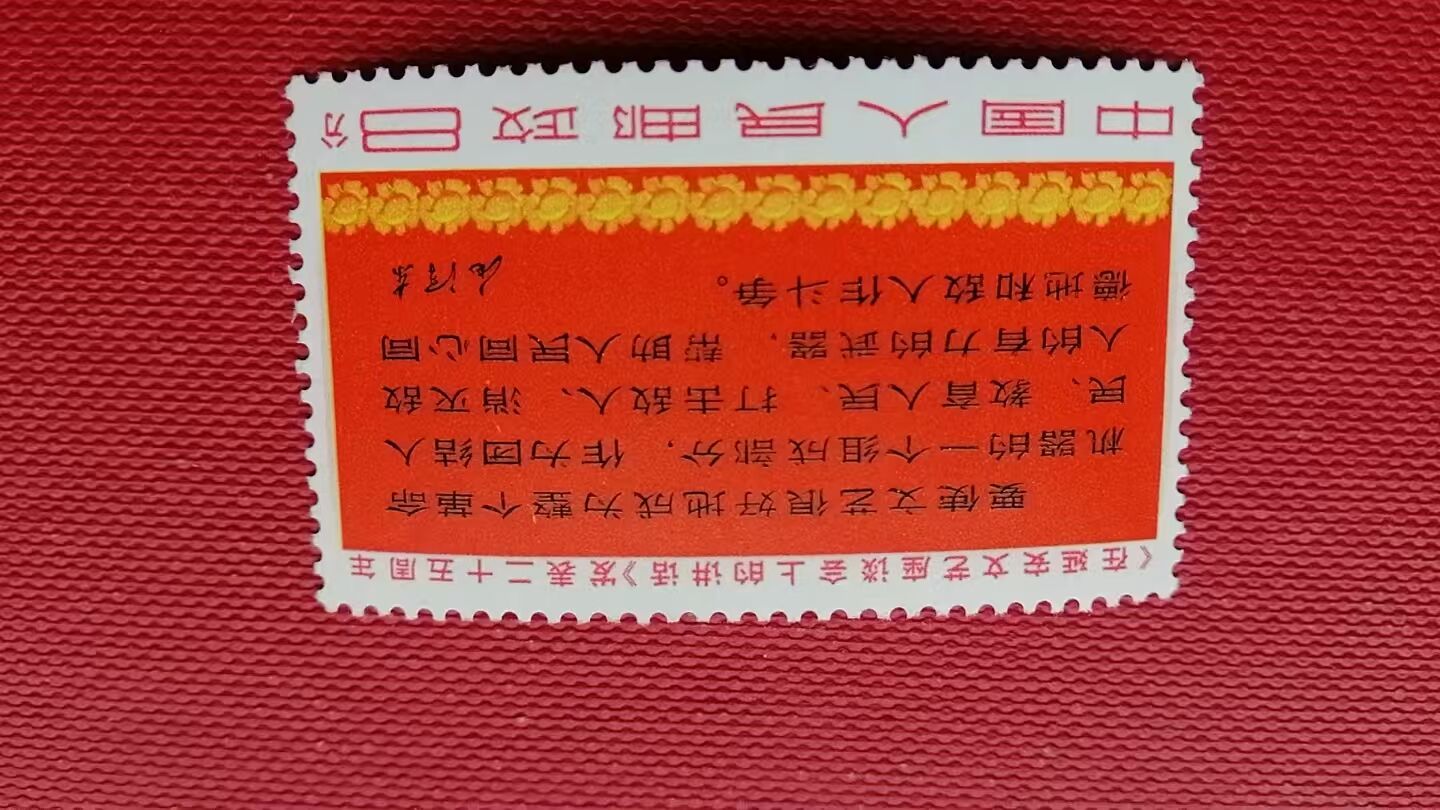 《在延安文艺座谈会上的讲话》发表二十五周年
要使文艺很好地成为整个革命
机器的一个组成部分，作为团结人
民、教育人民、打击敌人、消灭敌
人的有力的武器，帮助人民同心同
德地和敌人作斗争。 毛泽东
中国人民邮政 8分